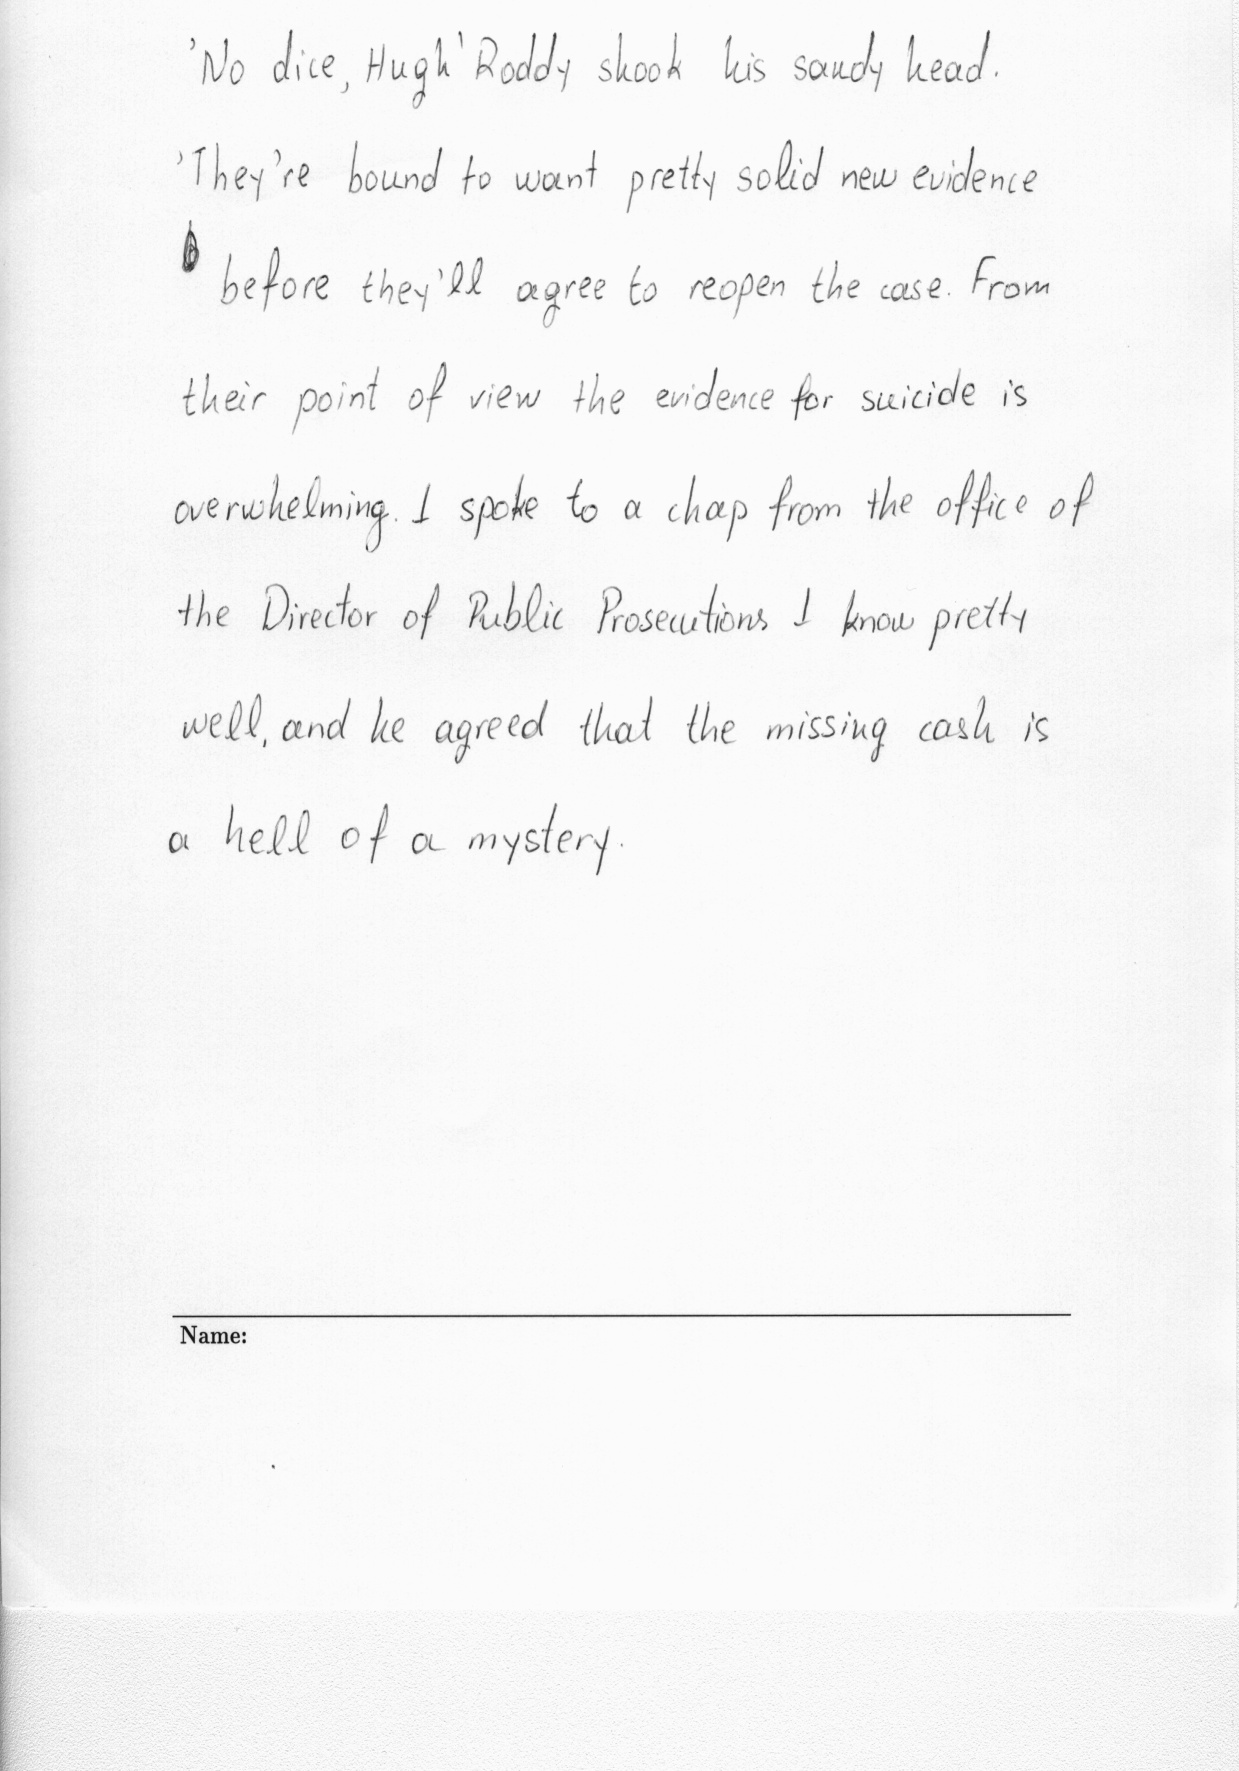 'No dice, Hugh' Roddy shook his sandy head.
'They're bound to want pretty solid new evidence
before they'll agree to reopen the case. From
their point of view the evidence for suicide is
overwhelming. I spoke to a chap from the office of
the Director of Public Prosecutions I know pretty
well, and he agreed that the missing cash is
a hell of a mystery.
Name: